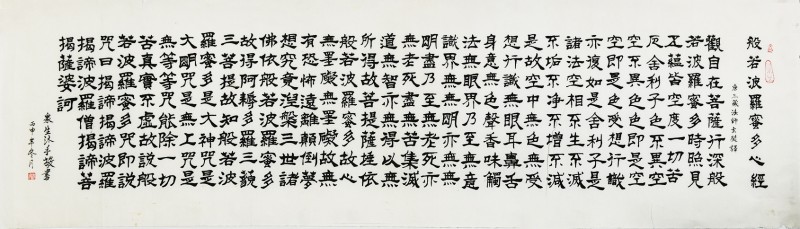 般若波羅蜜多心經
唐三藏法師玄奘譯
觀自在菩薩行深般
若波羅蜜多時照見
五蘊皆空度一切苦
厄舍利子色不異空
空不異色色即是空
空即是色受想行識
亦復如是舍利子是
諸法空相不生不滅
不垢不淨不增不減
是故空中無色無受
想行識無眼耳鼻舌
身意無色聲香味觸
法無眼界乃至無意
識界無無明亦無無
明盡乃至無老死亦
無老死盡無苦集滅
道無智亦無得以無
所得故菩提薩埵依
般若波羅蜜多故心
無罣礙無罣礙故無
有恐怖遠離顛倒夢
想究竟涅槃三世諸
佛依般若波羅蜜多
故得阿耨多羅三藐
三菩提故知般若波
羅蜜多是大神咒是
大明咒是無上咒是
無等等咒能除一切
苦真實不虛故說般
若波羅蜜多咒即說
咒曰揭諦揭諦波羅
揭諦波羅僧揭諦菩
揭薩婆訶
敬書
丙申年冬月